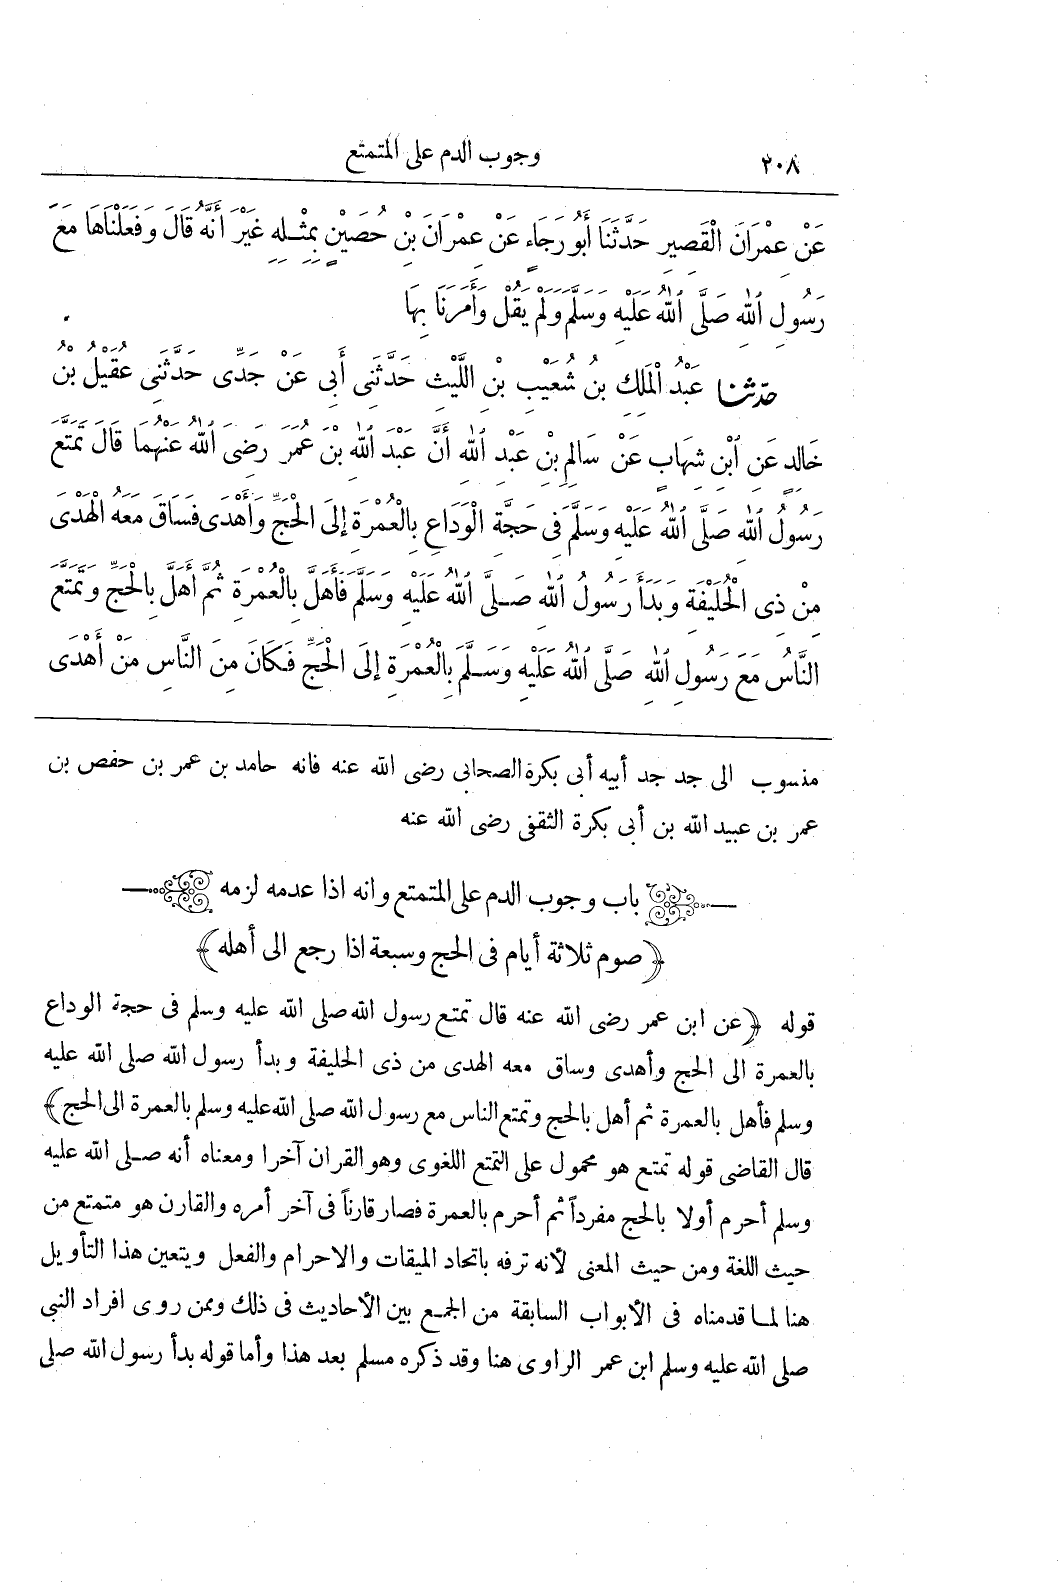 ٢٠٨ وجوب الدم على المتمتع
عَنْ عِمْرَانَ الْقَصِيرِ حَدَّثَنَا أَبُو رَجَاءٍ عَنْ عِمْرَانَ بْنِ حُصَيْنٍ بِمِثْلِهِ غَيْرَ أَنَّهُ قَالَ وَفَعَلْنَاهَا مَعَ
رَسُولِ اللهِ صَلَّى اللهُ عَلَيْهِ وَسَلَّمَ وَلَمْ يَقُلْ وَأَمَرَنَا بِهَا
حدثنا عَبْدُ الْمَلِكِ بْنُ شُعَيْبِ بْنِ اللَّيْثِ حَدَّثَنِى أَبِى عَنْ جَدِّى حَدَّثَنِى عُقَيْلُ بْنُ
خَالِدٍ عَنِ ابْنِ شِهَابٍ عَنْ سَالِمِ بْنِ عَبْدِ اللهِ أَنَّ عَبْدَ اللهِ بْنَ عُمَرَ رَضِىَ اللهُ عَنْهُمَا قَالَ تَمَتَّعَ
رَسُولُ اللهِ صَلَّى اللهُ عَلَيْهِ وَسَلَّمَ فِى حَجَّةِ الْوَدَاعِ بِالْعُمْرَةِ إِلَى الْحَجِّ وَأَهْدَى فَسَاقَ مَعَهُ الْهَدْىَ
مِنْ ذِى الْحُلَيْفَةِ وَبَدَأَ رَسُولُ اللهِ صَلَّى اللهُ عَلَيْهِ وَسَلَّمَ فَأَهَلَّ بِالْعُمْرَةِ ثُمَّ أَهَلَّ بِالْحَجِّ وَتَمَتَّعَ
النَّاسُ مَعَ رَسُولِ اللهِ صَلَّى اللهُ عَلَيْهِ وَسَلَّمَ بِالْعُمْرَةِ إِلَى الْحَجِّ فَكَانَ مِنَ النَّاسِ مَنْ أَهْدَى
منسوب الى جد جد أبيه أبى بكرة الصحابى رضى الله عنه فانه حامد بن عمر بن حفص بن
عمر بن عبيد الله بن أبى بكرة الثقفى رضى الله عنه
باب وجوب الدم على المتمتع وانه اذا عدمه لزمه
﴿صوم ثلاثة أيام فى الحج وسبعة اذا رجع الى أهله﴾
قوله ﴿عن ابن عمر رضى الله عنه قال تمتع رسول الله صلى الله عليه وسلم فى حجة الوداع
بالعمرة الى الحج وأهدى وساق معه الهدى من ذى الحليفة وبدأ رسول الله صلى الله عليه
وسلم فأهل بالعمرة ثم أهل بالحج وتمتع الناس مع رسول الله صلى الله عليه وسلم بالعمرة الى الحج﴾
قال القاضى قوله تمتع هو محمول على التمتع اللغوى وهو القران آخرا ومعناه أنه صلى الله عليه
وسلم أحرم أولا بالحج مفرداً ثم أحرم بالعمرة فصار قارناً فى آخر أمره والقارن هو متمتع من
حيث اللغة ومن حيث المعنى لأنه ترفه باتحاد الميقات والاحرام والفعل ويتعين هذا التأويل
هنا لما قدمناه فى الأبواب السابقة من الجمع بين الأحاديث فى ذلك وممن روى افراد النبى
صلى الله عليه وسلم ابن عمر الراوى هنا وقد ذكره مسلم بعد هذا وأما قوله بدأ رسول الله صلى